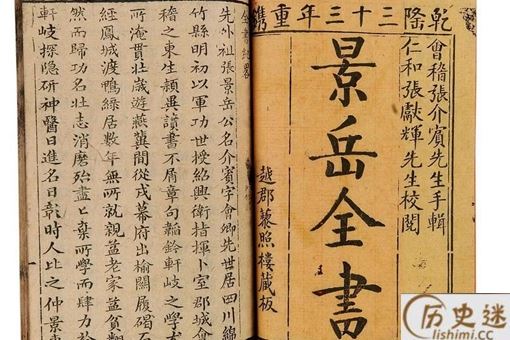 乾隆三十三年重鐫
會稽張介賓先生手輯
仁和張獻輝先生校閱
景岳全書
越郡藜照樓藏板
全書紀畧
先外祖張景岳公名介賓字會卿先世居四川綿
竹縣明初以軍功世授紹興衛指揮卜室郡城會
稽之東生穎異讀書不屑章句韜鈐軒岐之學尤
所淹貫壯歲遊燕冀間從戎幕府出榆關履碣石
經鳳城渡鴨綠居數年無所就親益老家益貧翻
然而歸功名壯志消磨殆盡匕棄所學而肆力於
軒岐探隱研神醫日進名日彰時人比之仲景東
历史迷
lishimi.cc